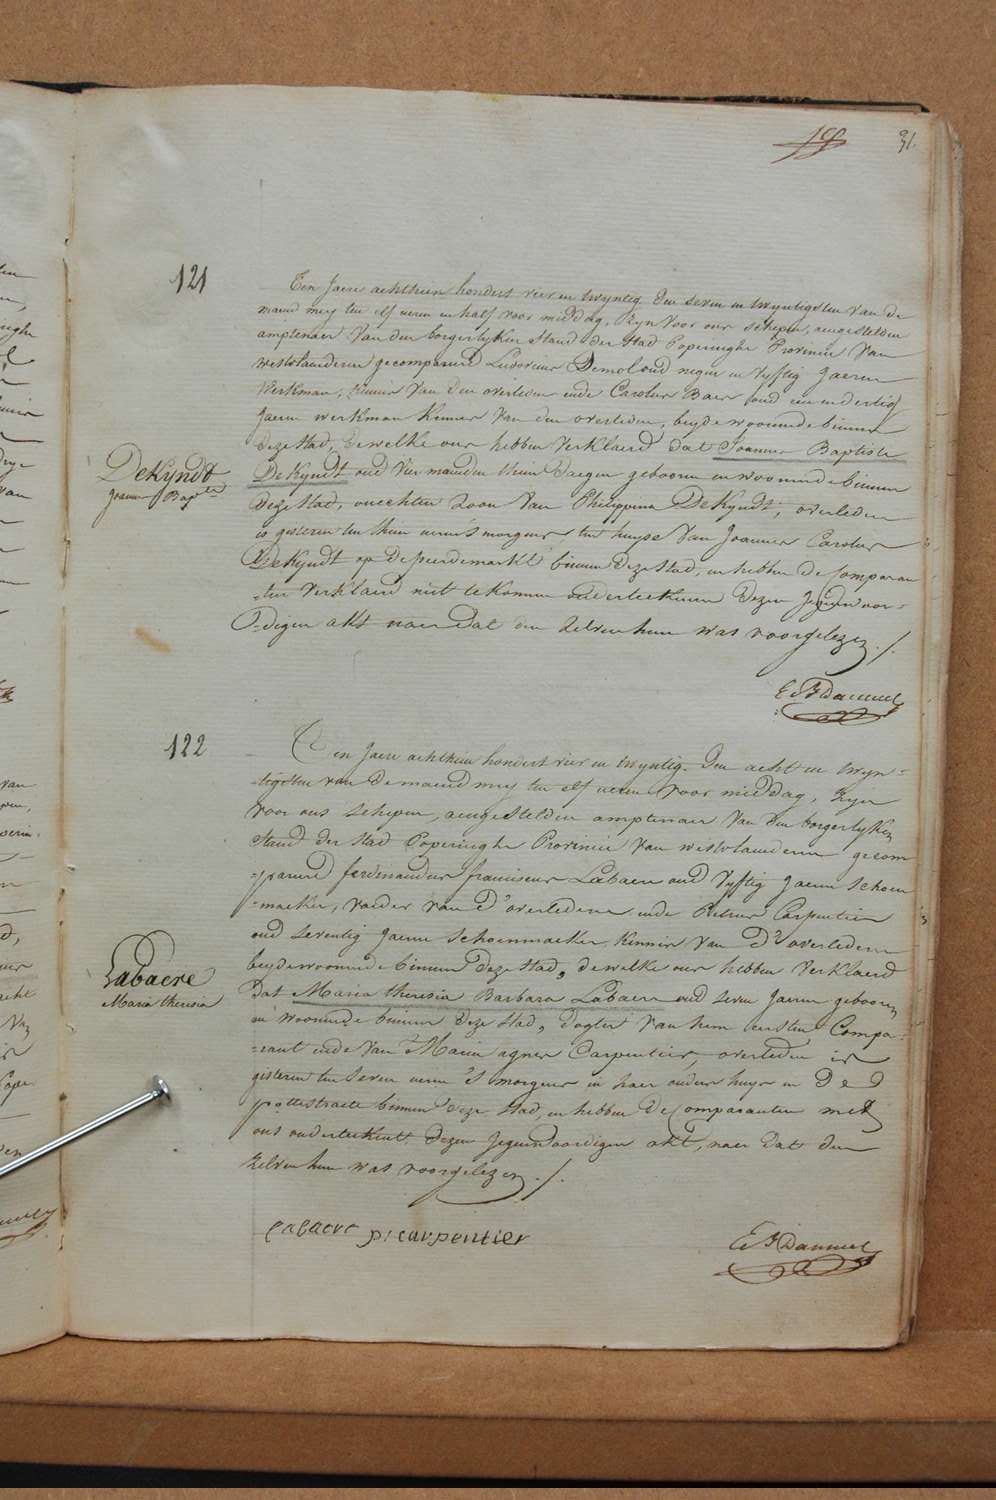 31
121
Ten Jaere achthien hondert vier en twyntig den seven en twyntigsten van de
maend mey ten elf ueren en half voor middag, zyn voor ons schepen, aengestelden
amptenaer van den borgerlyken stand der stad Poperinghe Provincie van
westvlaenderen gecompareerd Ludovicus Demol oud negen en vyftig Jaeren
werkman, kennis van den overleden ende Carolus Baes oud een en dertig
Jaeren werkman kennis van den overleden, beyde woonende binnen
deze stad, dewelke ons hebben verklaerd dat Joannes Baptiste
DeKyndt oud vier maenden thien daegen geboren en woonende binnen
DeKyndt
Joannes Bap.te
deze stad, onechten zoon van Philippina DeKyndt, overleden
is gisteren ten thien ueren 's morgens ten huyse van Joannes Carolus
DeKyndt op de peerdemarkt binnen deze stad, en hebben de Comparan
-ten verklaerd niet te konnen onderteekenen dezen jegenwoor-
-digen akt naer dat den zelven hun was voorgelezen ./.
122
Ten Jaere achthien hondert vier en twyntig. den acht en twyn-
-tigsten van de maend mey ten elf ueren voor middag, zyn
voor ons schepen, aengestelden amptenaer van den borgerlyken
stand der stad Poperinghe Provincie van westvlaenderen gecom
-pareerd ferdinandus franciscus Labaere oud vyftig Jaeren schoen
-maeker, vaeder van d'overledene ende Petrus Carpentier
oud seventig Jaeren schoenmaeker, kennis van d'overledene
beyde woonende binnen deze stad, dewelke ons hebben verklaerd
Labaere
Maria theresia
dat Maria theresia Barbara Labaere oud seven Jaeren geboren
en woonende binnen deze stad, dogter van hem eersten Compa-
-rant ende van Marie agnes Carpentier overleden is
gisteren ten seven ueren 's morgens in haer ouders huys in de
pottestraete binnen deze stad, en hebben de Comparanten met
ons onderteekent dezen jegenwoordigen akt, naer dat den
zelven hun was voorgelezen ./.
Labaere p: carpentier